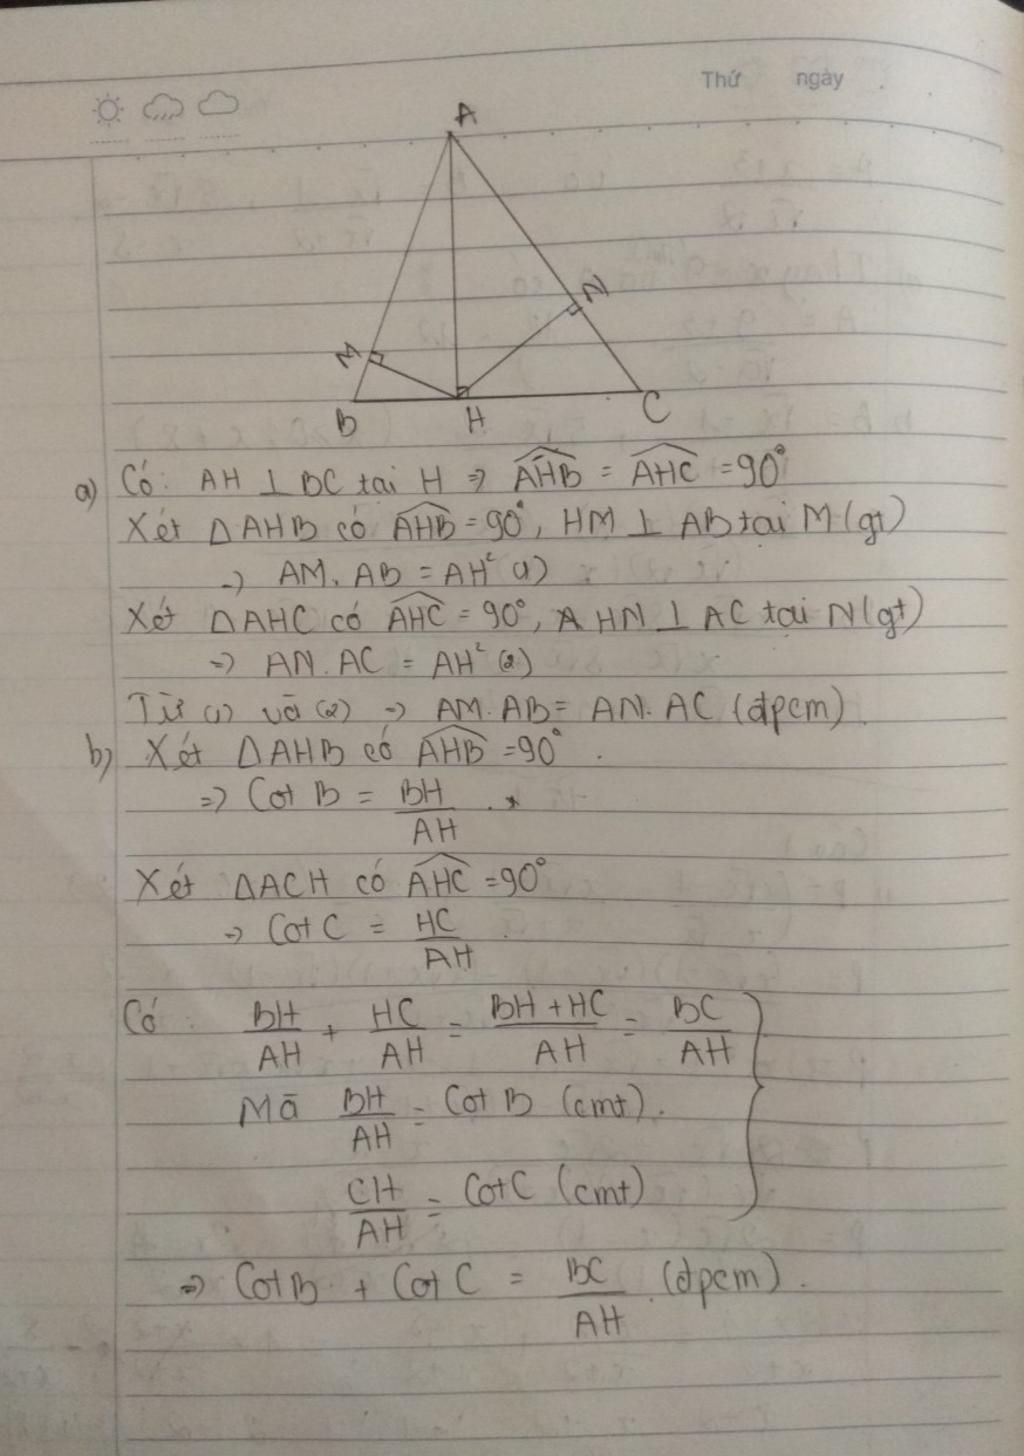 Thứ ngày
A
M
N
B H C
a) Có: AH ⊥ BC tại H => AHB = AHC = 90°
Xét ΔAHB có AHB = 90°, HM ⊥ AB tại M (gt)
=> AM. AB = AH² (1)
Xét ΔAHC có AHC = 90°, HN ⊥ AC tại N (gt)
=> AN. AC = AH² (2)
Từ (1) và (2) => AM. AB = AN. AC (đpcm)
b) Xét ΔAHB có AHB = 90°.
=> Cot B = BH/AH
Xét ΔACH có AHC = 90°
=> Cot C = HC/AH
Có: BH/AH + HC/AH = BH + HC/AH = BC/AH
Mà BH/AH = Cot B (cmt).
CH/AH = Cot C (cmt)
=> Cot B + Cot C = BC/AH (đpcm).